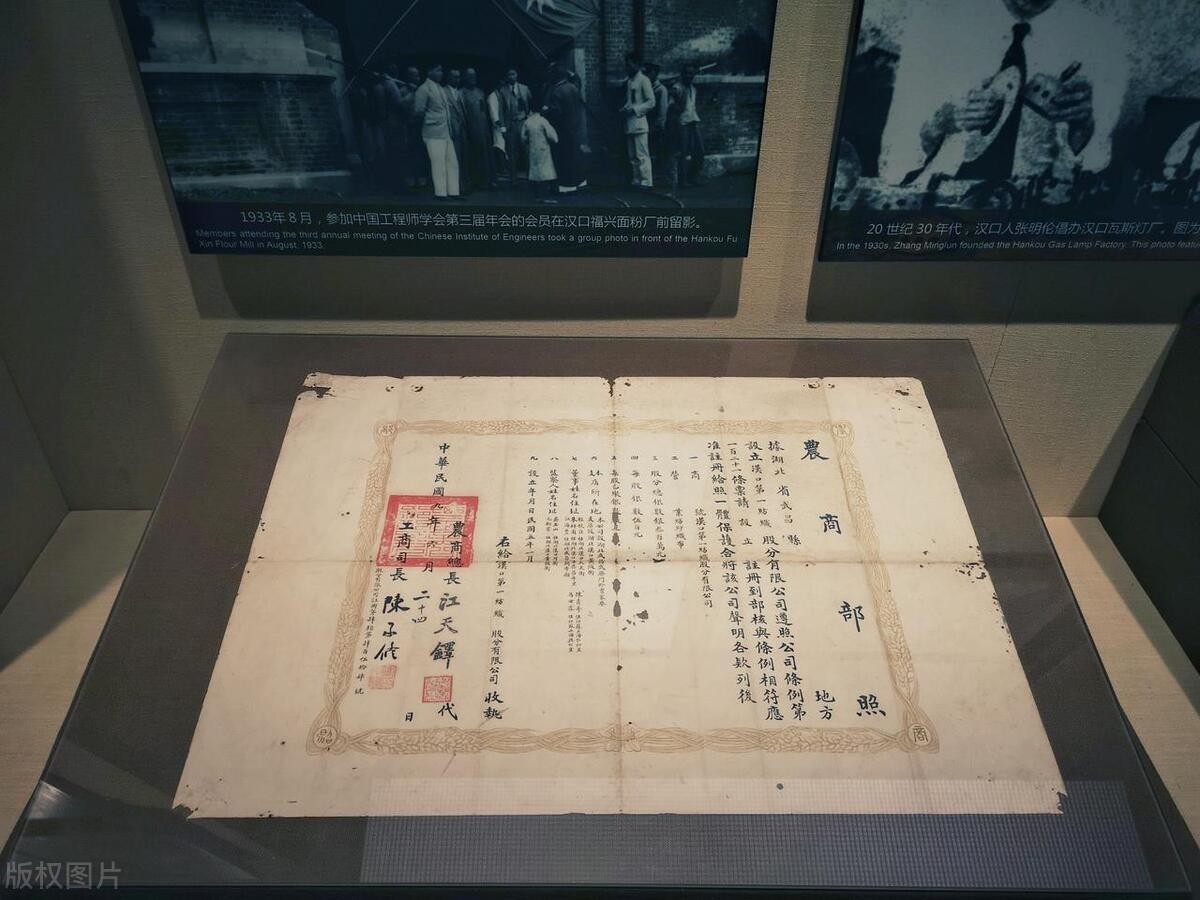 1933年8月，参加中国工程师学会第三届年会的会员在汉口福兴面粉厂前留影。
Members attending the third annual meeting of the Chinese Institute of Engineers took a group photo in front of the Hankou Fu
Xin Flour Mill in August, 1933.
20世纪30年代，汉口人张明伦倡办汉口瓦斯灯厂。图为
In the 1930s, Zhang Minglun founded the Hankou Gas Lamp Factory. This photo featu
農商部照
據湖北省武昌縣地方
設立漢口第一紡織股分有限公司遵照公司條例第
一百二十一條禀請設立註冊到部核與條例相符應
准註冊給照一體保護合將該公司聲明各欵列後
一 商號漢口第一紡織股分有限公司
二 營業紡紗織布
三 股分總銀數銀叁百萬元
四 每股銀數伍百元
五 每股已繳銀數
六 本店支店所在地
七 董事姓名住址
八 監察人姓名住址
九 設立年月日民國五年一月
右給漢口第一紡織股分有限公司收執
農商總長江天鐸代
中華民國九年六月二十四日
工商司長陳子修
農
商
版权图片